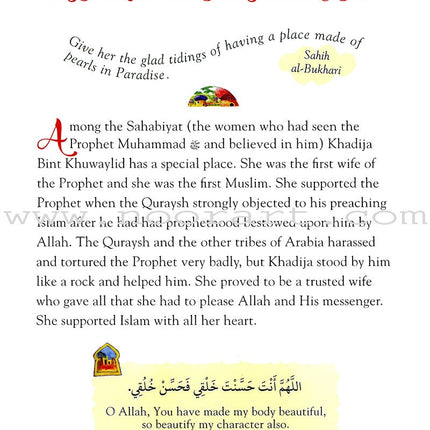 Give her the glad tidings of having a place made of
pearls in Paradise.
Sahih
al-Bukhari
Among the Sahabiyat (the women who had seen the
Prophet Muhammad ﷺ and believed in him) Khadija
Bint Khuwaylid has a special place. She was the first wife of
the Prophet and she was the first Muslim. She supported the
Prophet when the Quraysh strongly objected to his preaching
Islam after he had had prophethood bestowed upon him by
Allah. The Quraysh and the other tribes of Arabia harassed
and tortured the Prophet very badly, but Khadija stood by him
like a rock and helped him. She proved to be a trusted wife
who gave all that she had to please Allah and His messenger.
She supported Islam with all her heart.
www.noorart.com
اللَّهُمَّ أَنْتَ حَسَّنْتَ خَلْقِي فَحَسِّنْ خُلُقِي.
O Allah, You have made my body beautiful,
so beautify my character also.